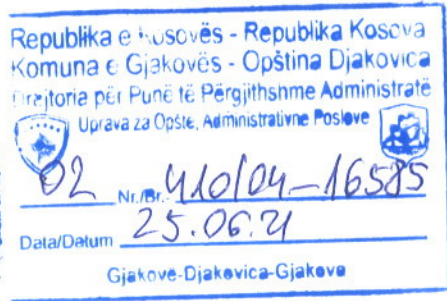 Republika e Kosovës - Republika Kosova
Komuna e Gjakovës - Opština Djakovica
Drejtoria për Punë të Përgjithshme Administratë
Uprava za Opšte, Administrativne Poslove
02 Nr./Br. 410/04-16585
Data/Datum 25.06.21
Gjakovë-Djakovica-Gjakova